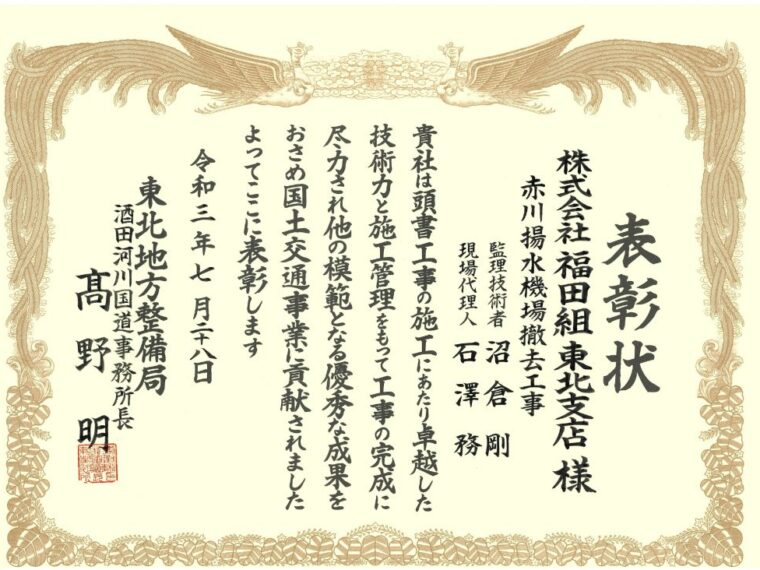 表彰状
株式会社 福田組 東北支店 様
赤川揚水機場撤去工事
監理技術者 沼倉 剛
現場代理人 石澤 務
貴社は頭書工事の施工にあたり卓越した
技術力と施工管理をもって工事の完成に
尽力され他の模範となる優秀な成果を
おさめ国土交通事業に貢献されました
よってここに表彰します
令和三年七月二十八日
東北地方整備局
酒田河川国道事務所長
髙野 明